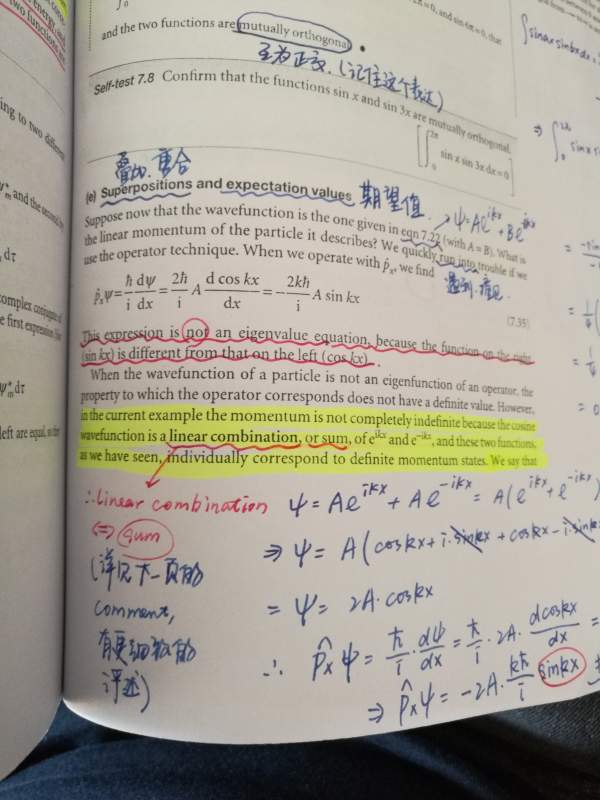 and the two functions are mutually orthogonal.
互为正交.(记住这个表达)
Self-test 7.8 Confirm that the functions sin x and sin 3x are mutually orthogonal.
[∫₀^2π sin x sin 3x dx = 0]
叠加.重合
(e) Superpositions and expectation values 期望值.
→ ψ=Ae^ikx + Be^-ikx
Suppose now that the wavefunction is the one given in eqn 7.22 (with A = B). What is
the linear momentum of the particle it describes? We quickly run into trouble if we
use the operator technique. When we operate with p̂ₓ, we find
遇到.
p̂ₓψ = ħ/i dψ/dx = 2ħ/i A d cos kx/dx = − 2kħ/i A sin kx
(7.35)
This expression is not an eigenvalue equation, because the function on the right
(sin kx) is different from that on the left (cos kx).
When the wavefunction of a particle is not an eigenfunction of an operator, the
property to which the operator corresponds does not have a definite value. However,
in the current example the momentum is not completely indefinite because the cosine
wavefunction is a linear combination, or sum, of e^ikx and e^−ikx, and these two functions,
as we have seen, individually correspond to definite momentum states. We say that
∴ linear combination
⇔ sum
(详见下一页的
comment,
有更细致的
评述)
ψ = Ae^ikx + Ae^-ikx = A(e^ikx + e^-ikx)
⇒ ψ = A(coskx + i·sinkx + coskx − i·sinkx
= ψ = 2A·coskx
∴ p̂ₓψ = ħ/i · dψ/dx = ħ/i · 2A · dcoskx/dx =
⇒ p̂ₓψ = −2A · kħ/i sinkx